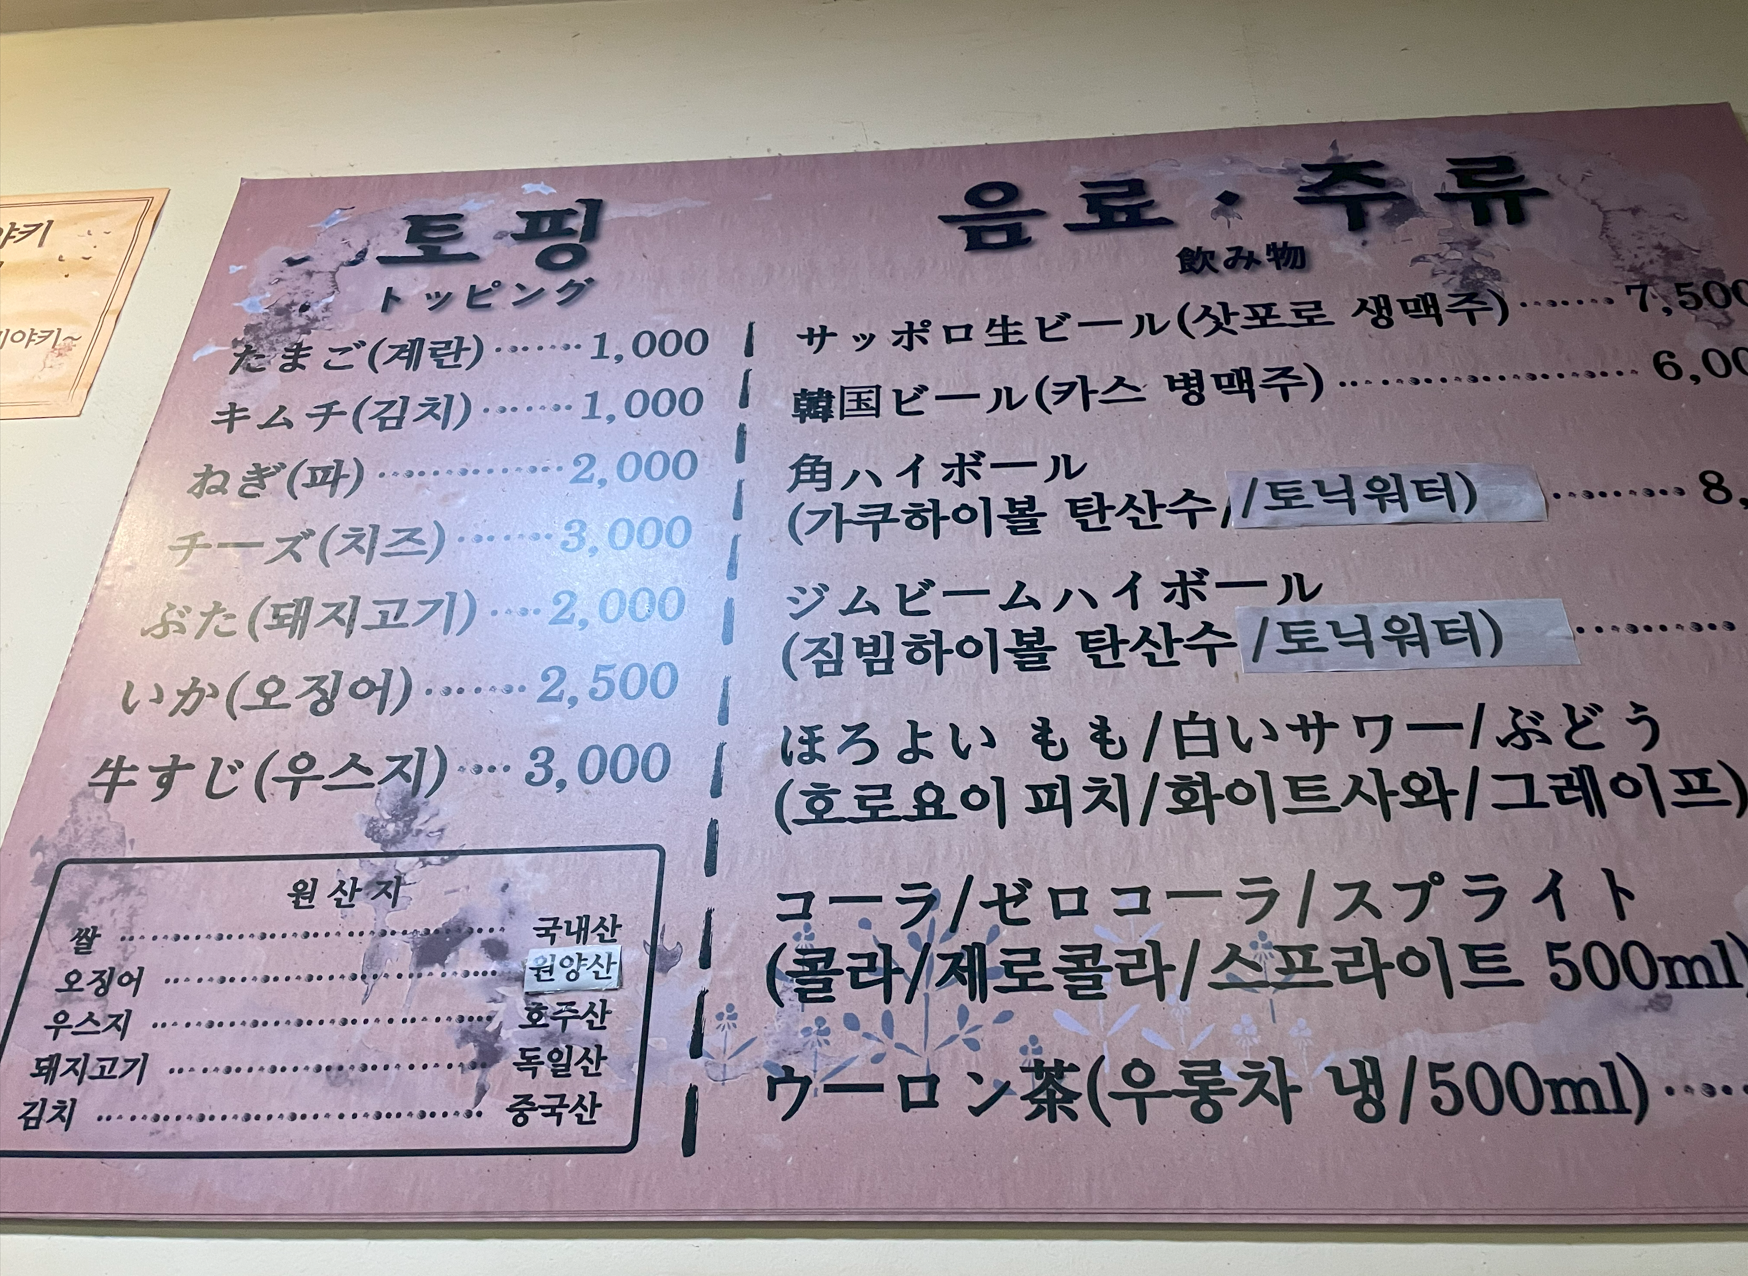 야키
이야키~
토핑
トッピング
たまご(계란)·······1,000
キムチ(김치)·······1,000
ねぎ(파)··············2,000
チーズ(치즈)·······3,000
ぶた(돼지고기)····2,000
いか(오징어)·······2,500
牛すじ(우스지)····3,000
원산지
쌀 ·········· 국내산
오징어 ·········· 원양산
우스지 ·········· 호주산
돼지고기 ·········· 독일산
김치 ·········· 중국산
음료·주류
飲み物
サッポロ生ビール(삿포로 생맥주)·······7,500
韓国ビール(카스 병맥주)··············6,00
角ハイボール
(가쿠하이볼 탄산수/토닉워터)·········8,
ジムビームハイボール
(짐빔하이볼 탄산수/토닉워터)·········
ほろよい もも/白いサワー/ぶどう
(호로요이 피치/화이트사와/그레이프)
コーラ/ゼロコーラ/スプライト
(콜라/제로콜라/스프라이트 500ml)
ウーロン茶(우롱차 냉/500ml)·····